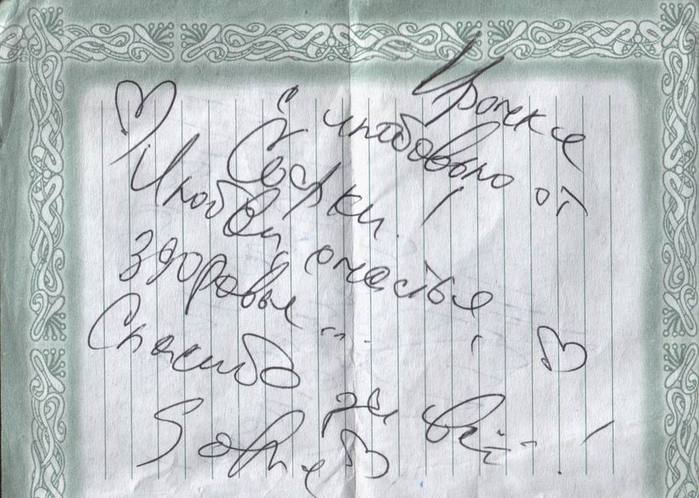 Ирочке
с любовью от
Софки!
Любви, счастья,
здоровья...!
Спасибо
за всё!
Sofie